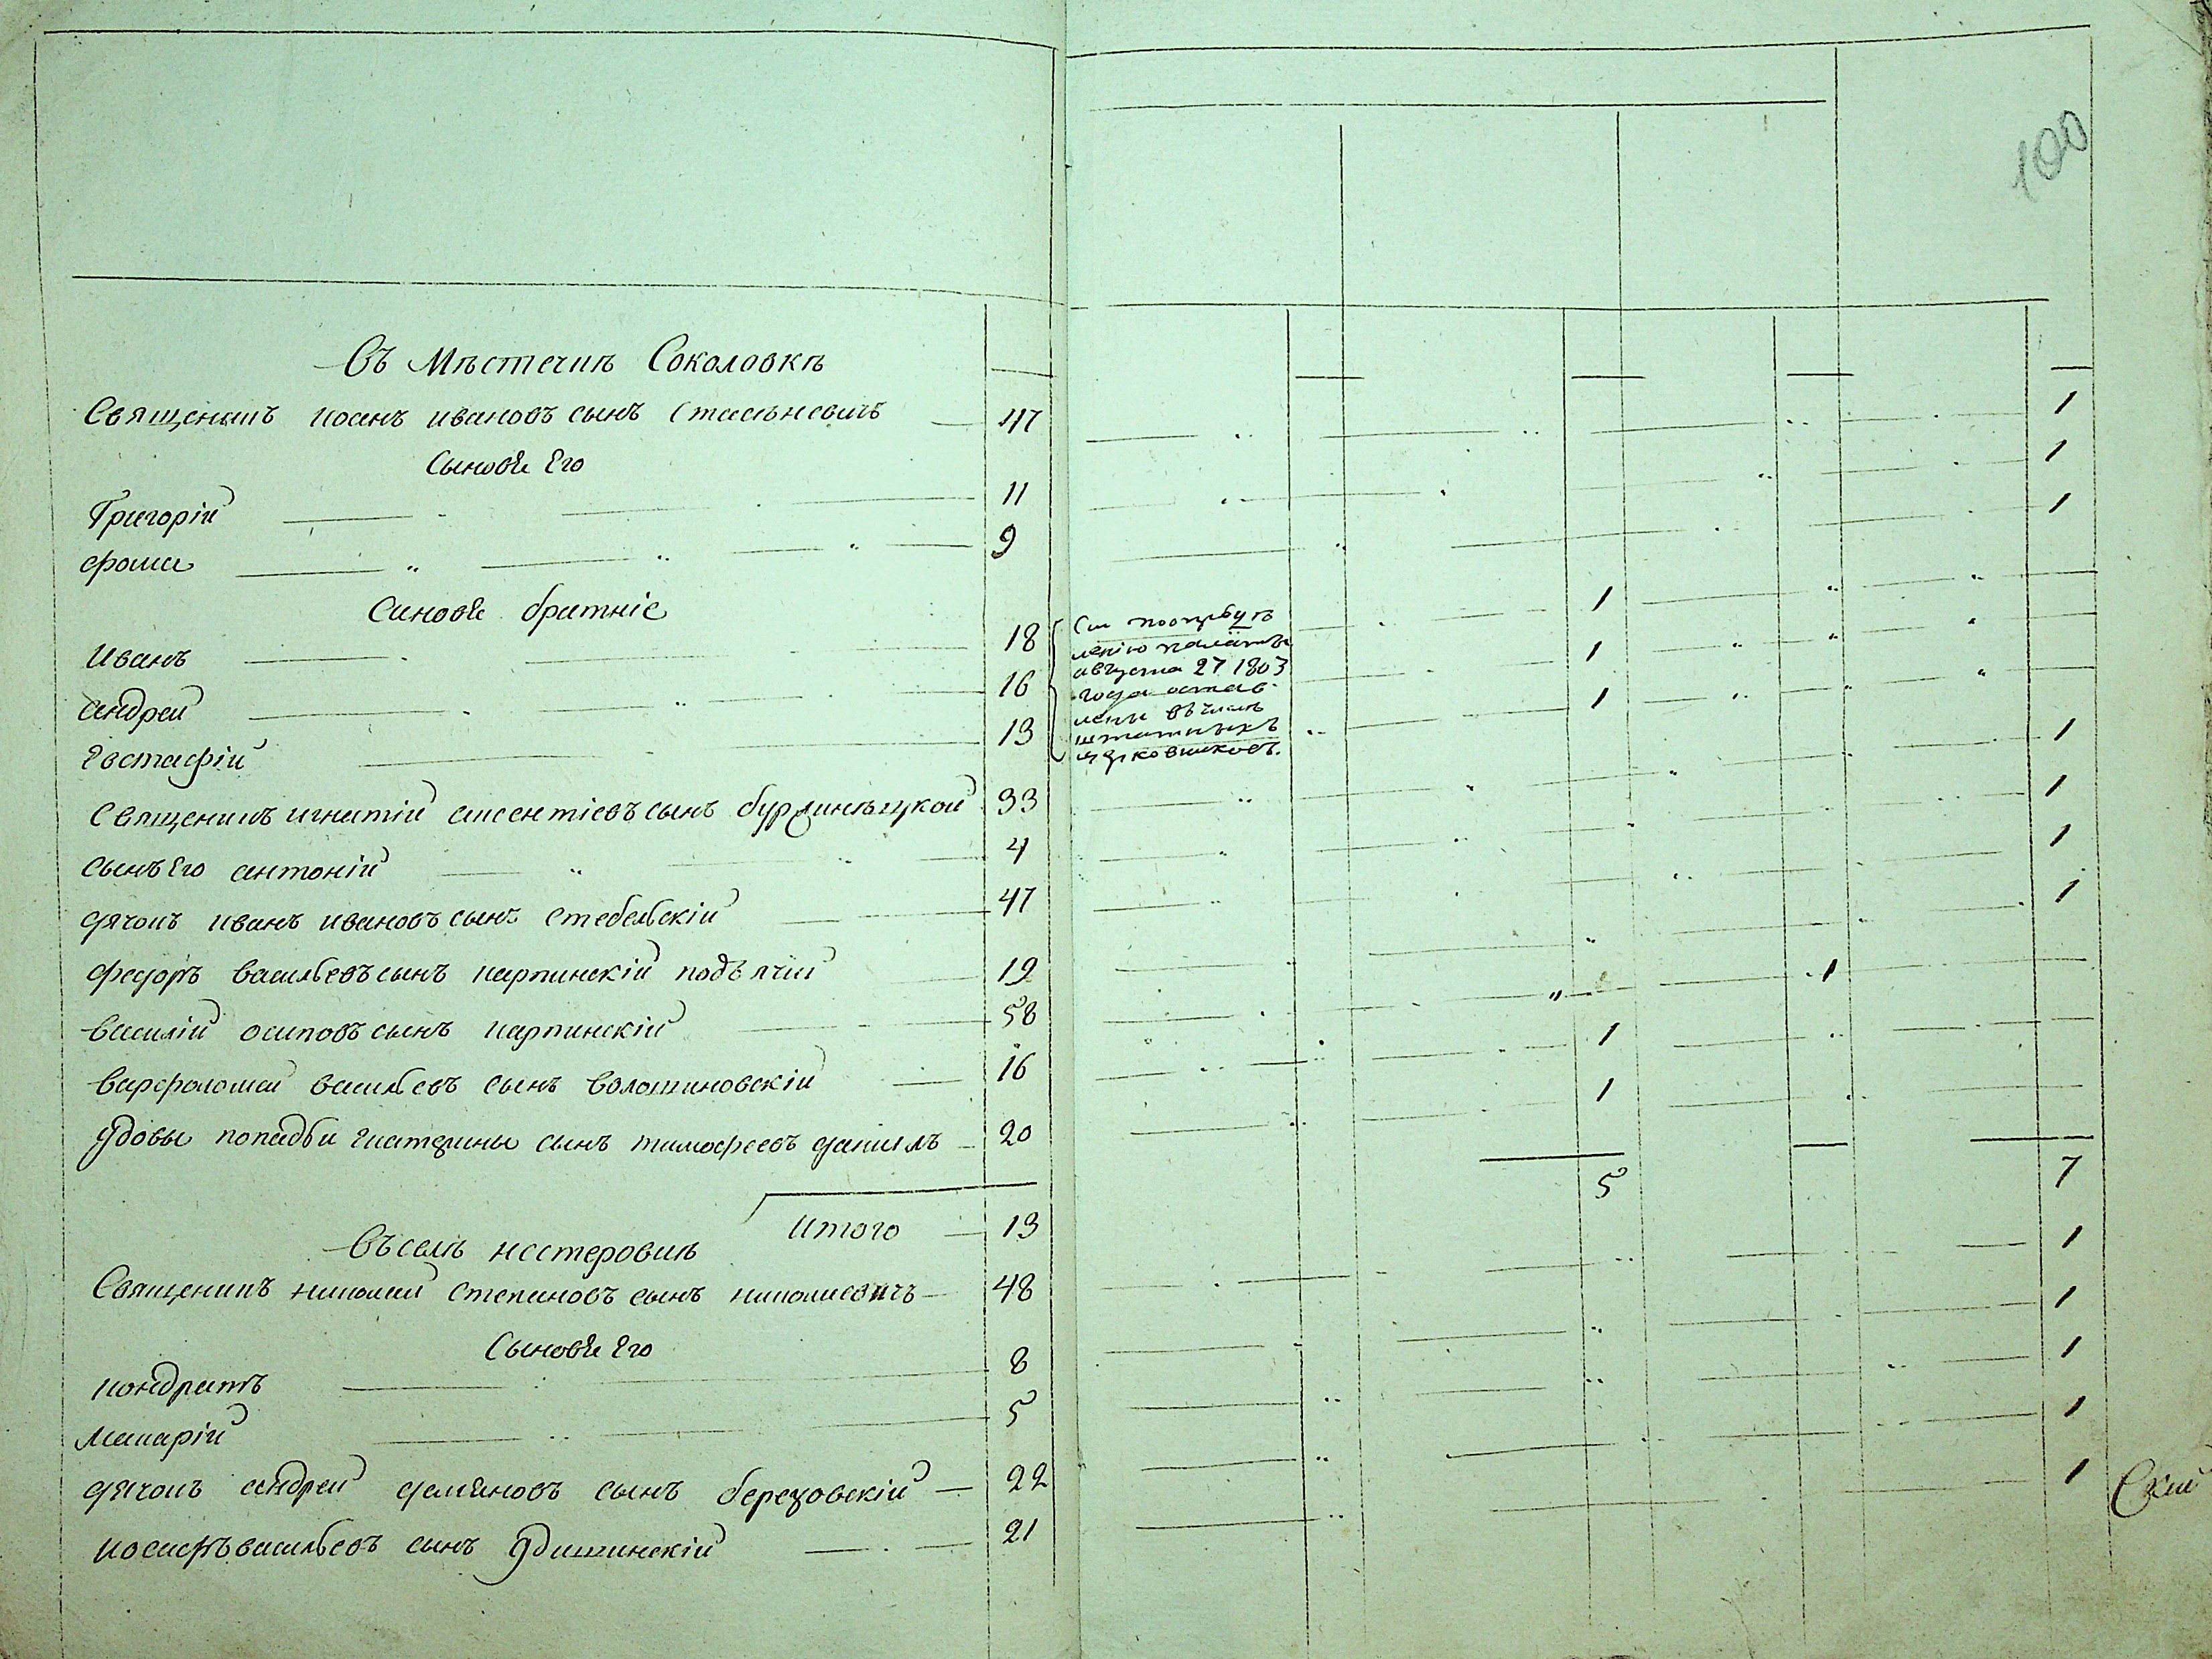 100
Въ Мѣстечкѣ Соколовкѣ
Священикъ Иоанъ Ивановъ сынъ 47 1
Сыновѣ Его
Григорій 11 1
Фома 9 1
Синовѣ братніе
Иванъ 18 1
Андрей 16 1
Евстафій 13 1
Сіи
палаты
августа 27 1803
года остав
лены въ числѣ
штатныхъ
церковниковъ.
Священикъ Игнатій Авсентіевъ сынъ 33 1
Сынъ Его Антоній 4 1
Дячокъ Иванъ Ивановъ сынъ Стебельскій 47 1
Федоръ Васильевъ сынъ Карпинскій подъячій 19 1
Василій Осиповъ сынъ Карпинскій 58 1
Варфоломей Васильевъ сынъ Волошиновскій 16 1
Удовы попадьи Екатерины сынъ Тимофеевъ Даниилъ 20 1
Итого 13 5 7
Въ селѣ Нестеровкѣ
Священикъ Николай Степановъ сынъ Николаевичъ 48 1
Сыновѣ Его
Кондратъ 8 1
Макарій 5 1
Дячокъ Андрей Демяновъ сынъ Березовскій 22 1
Иосифъ Васильевъ сынъ 21 1
Ской